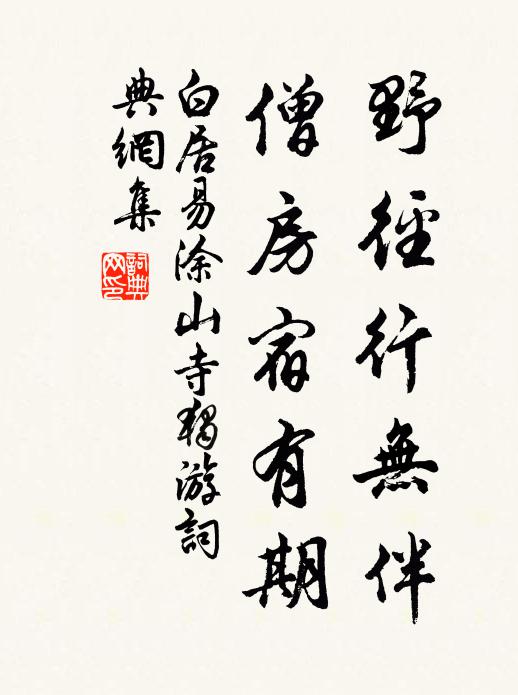 野徑行無伴
僧房宿有期
白居易涂山寺獨游詞
典網集
詞典网印